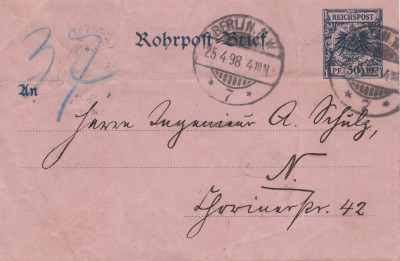 Rohrpost-Brief
REICHSPOST
PF 30 PF
BERLIN
25.4.98 4
* 7 *
37
An
Herrn Ingenieur A. Schulz,
N.
Chorinerstr. 42